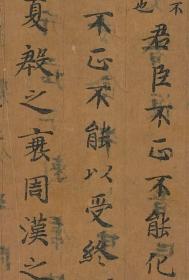 不
也
君臣不正不能化
不正不能以受終
夏殷之衰周漢之